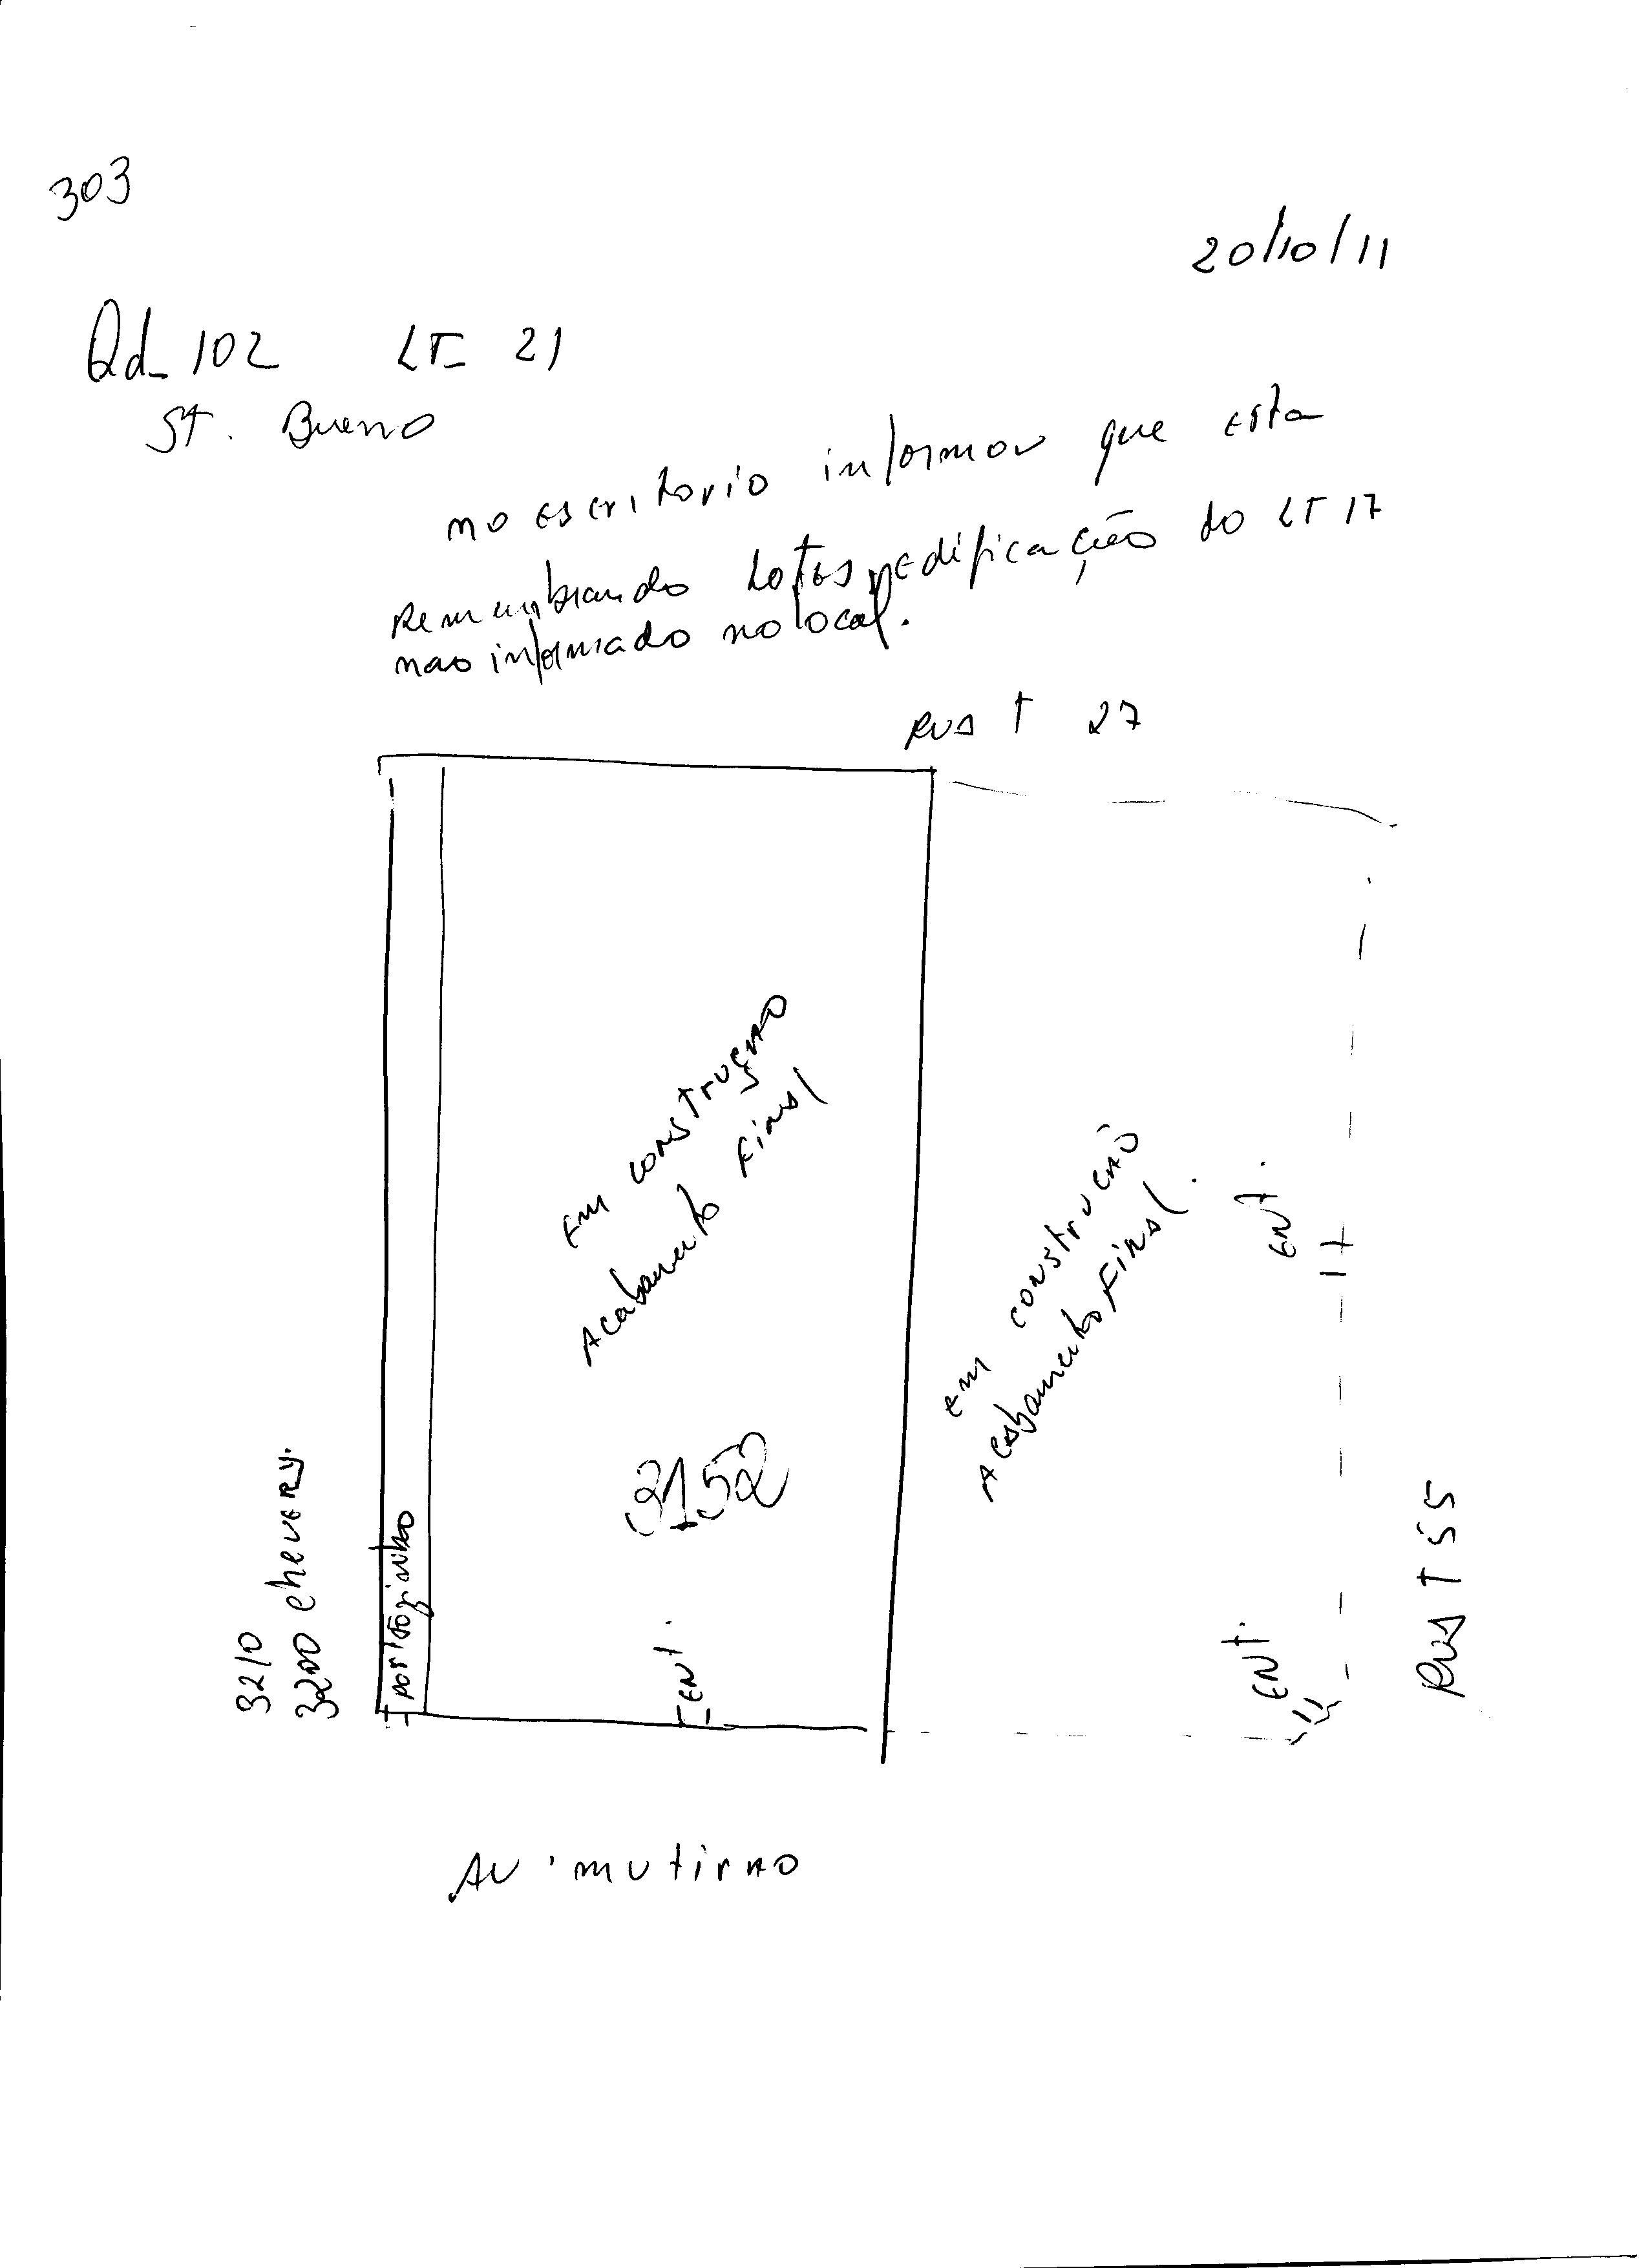 303
20/10/11
Qd_ 102 LT_ 21
St. Bueno
no escritorio informou que esta
Remembrando Lotes edificação do LT 17
nao informado no local.
RUA T 27
Em construção
Acabamento Final
em construção
Acabamento Final.
ENT.
3152
3210
3200 chevery.
portãozinho
ENT.
ENT.
RUA T 55
AV. mutirao